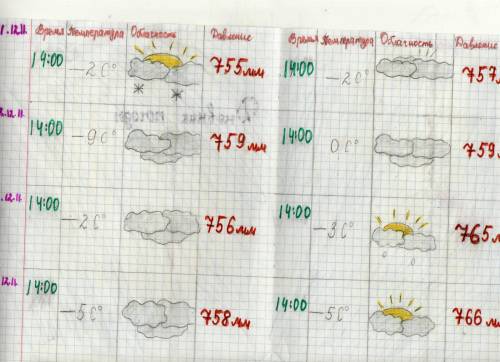 Время Температура Облачность Давление Время Температура Облачность Давление
1.12.11. 14:00 -2C° 755мм 14:00 -2C° 757м
.12.11. 14:00 -9C° 759мм 14:00 0C° 759м
Дневник погоды
.12.11. 14:00 -2C° 756мм 14:00 -3C° 765м
12.11. 14:00 -5C° 758мм 14:00 -5C° 766мм